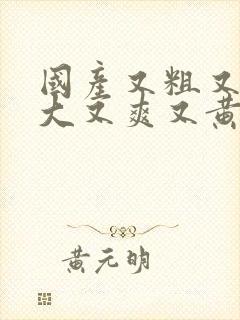 國產又粗又
大又爽又黃
黃元明